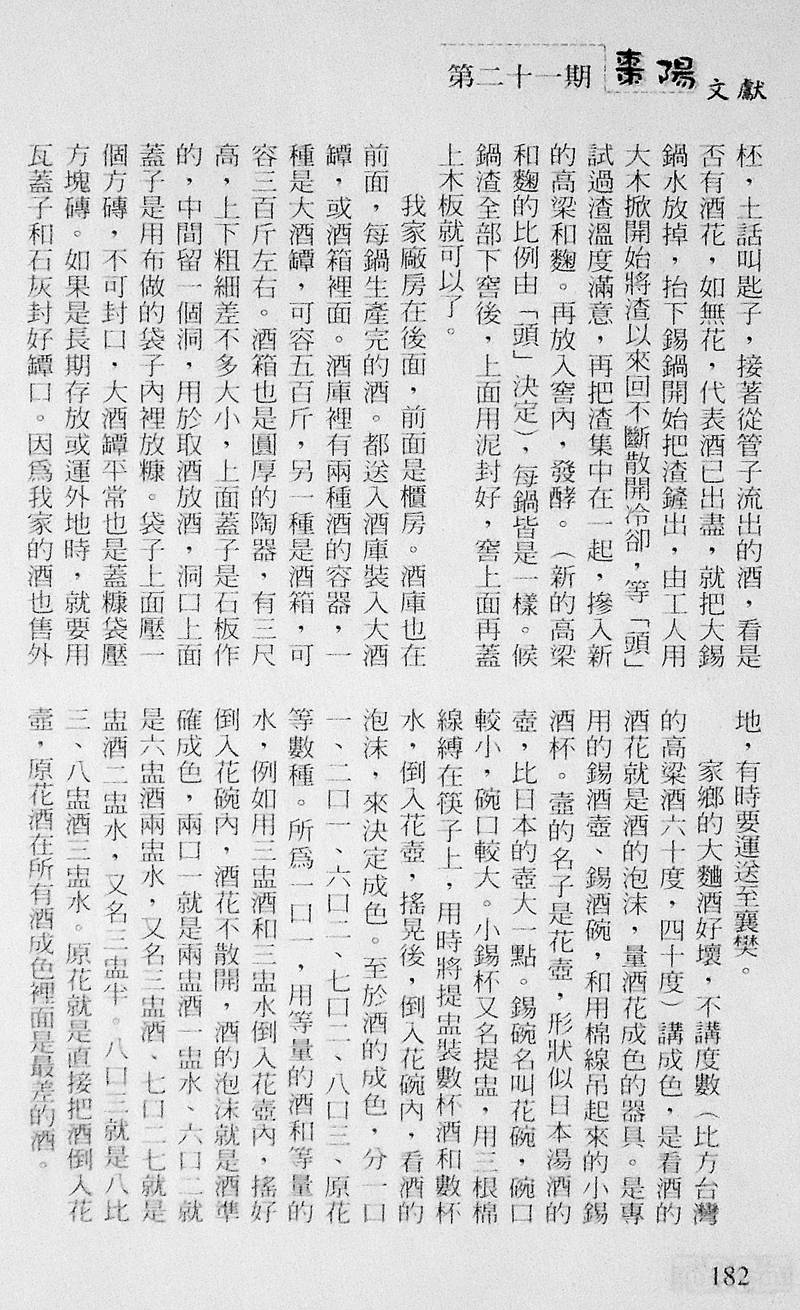 第二十一期 棗陽文獻
杯，土話叫匙子，接著從管子流出的酒，看是
否有酒花，如無花，代表酒已出盡，就把大錫
鍋水放掉，抬下錫鍋開始把渣鏟出，由工人用
大木掀開始將渣以來回不斷散開冷卻，等「頭」
試過渣溫度滿意，再把渣集中在一起，摻入新
的高梁和麴。再放入窖內，發酵。（新的高梁
和麴的比例由「頭」決定），每鍋皆是一樣。候
鍋渣全部下窖後，上面用泥封好，窖上面再蓋
上木板就可以了。
我家廠房在後面，前面是櫃房。酒庫也在
前面，每鍋生產完的酒。都送入酒庫裝入大酒
罈，或酒箱裡面。酒庫裡有兩種酒的容器，一
種是大酒罈，可容五百斤，另一種是酒箱，可
容三百斤左右。酒箱也是圓厚的陶器，有三尺
高，上下粗細差不多大小，上面蓋子是石板作
的，中間留一個洞，用於取酒放酒，洞口上面
蓋子是用布做的袋子內裡放糠。袋子上面壓一
個方磚，不可封口，大酒罈平常也是蓋糠袋壓
方塊磚。如果是長期存放或運外地時，就要用
瓦蓋子和石灰封好罈口。因為我家的酒也售外
地，有時要運送至襄樊。
家鄉的大麯酒好壞，不講度數（比方台灣
的高梁酒六十度，四十度）講成色，是看酒的
酒花就是酒的泡沫，量酒花成色的器具。是專
用的錫酒壺、錫酒碗，和用棉線吊起來的小錫
酒杯。壺的名子是花壺，形狀似日本湯酒的
壺，比日本的壺大一點。錫碗名叫花碗，碗口
較小，碗口較大。小錫杯又名提盅，用三根棉
線縛在筷子上，用時將提盅裝數杯酒和數杯
水，倒入花壺，搖晃後，倒入花碗內，看酒的
泡沫，來決定成色。至於酒的成色，分一口
一、二口一、六口二、七口二、八口三、原花
等數種。所為一口一，用等量的酒和等量的
水，例如用三盅酒和三盅水倒入花壺內，搖好
倒入花碗內，酒花不散開，酒的泡沫就是酒準
確成色，兩口一就是兩盅酒一盅水、六口二就
是六盅酒兩盅水，又名三盅酒、七口二七就是
盅酒二盅水，又名三盅半。八口三就是八比
三、八盅酒三盅水。原花就是直接把酒倒入花
壺，原花酒在所有酒成色裡面是最差的酒。
182